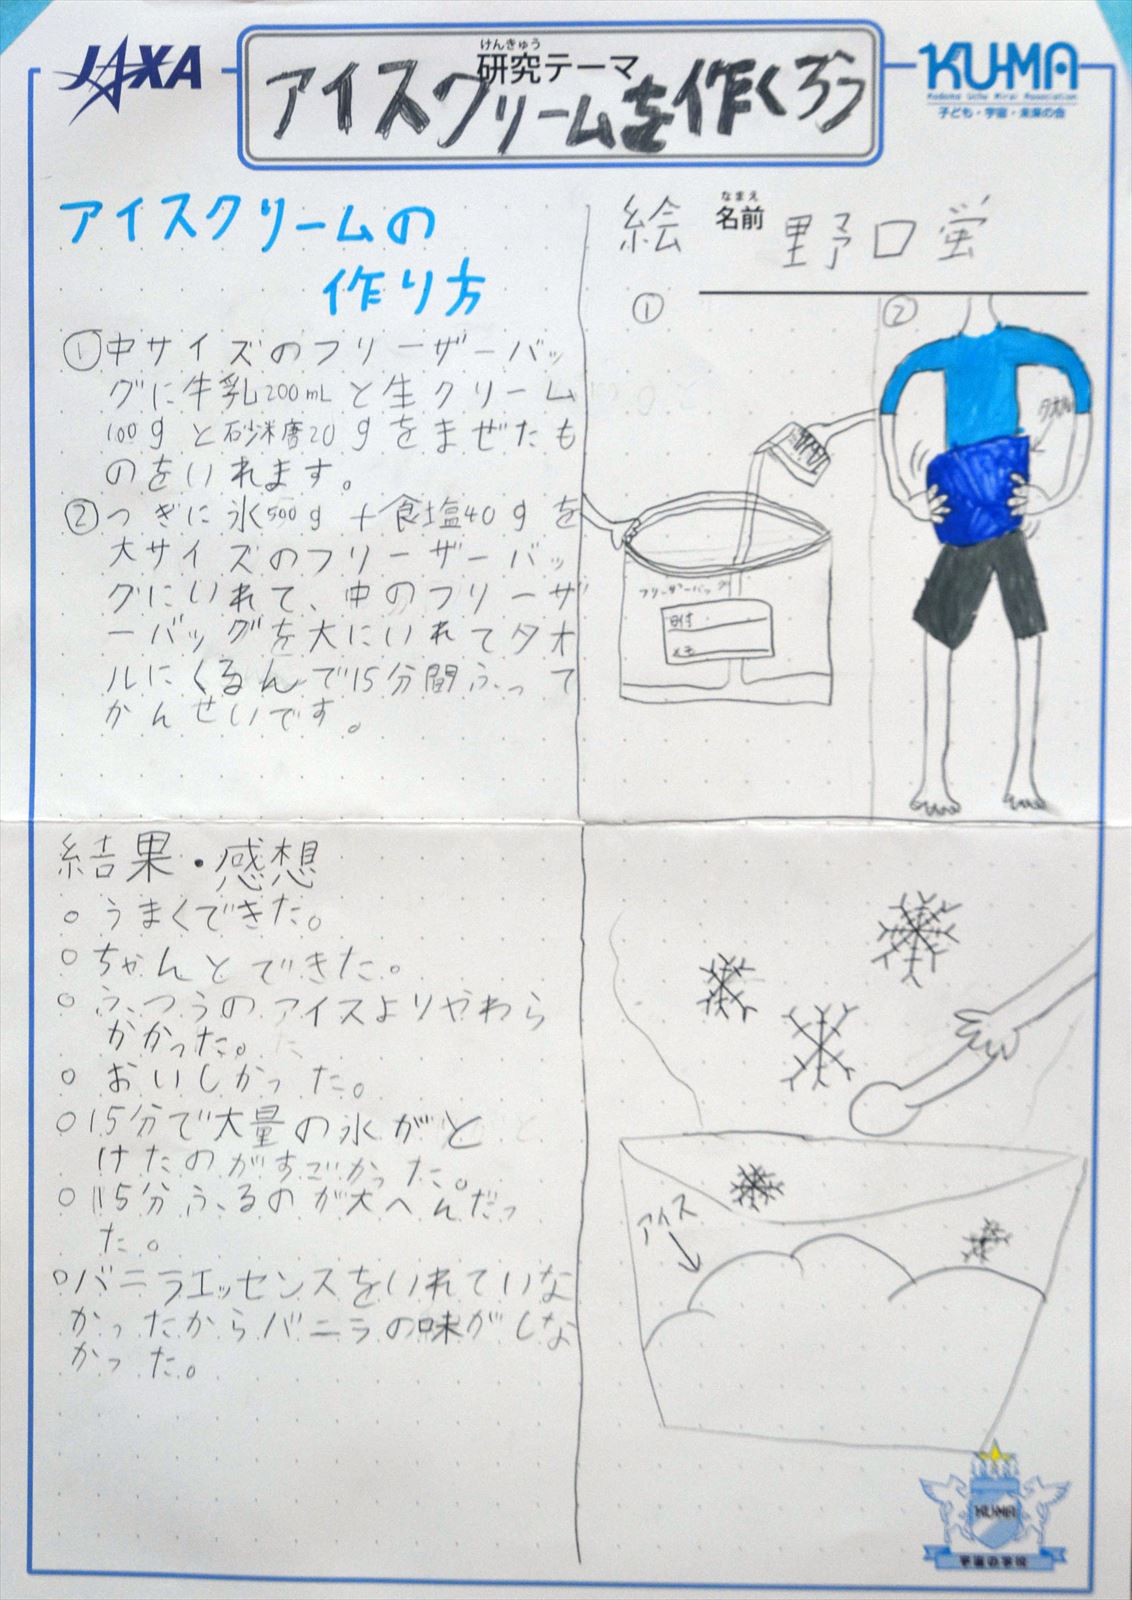 JAXA
けんきゅう
研究テーマ
アイスクリームを作くろう
KU-MA
Kodomo Uchu Mirai Association
子ども・宇宙・未来の会
アイスクリームの
作り方
①中サイズのフリーザーバッ
グに牛乳200mLと生クリーム
100gと砂糖20gをまぜたも
のをいれます。
②つぎに氷500g+食塩40gを
大サイズのフリーザーバッ
グにいれて、中のフリーザ
ーバッグを大にいれてタオ
ルにくるんで15分間ふって
かんせいです。
絵
なまえ
名前
野口蛍
①
②
タオル
フリーザーバッグ
日付
メモ
結果・感想
○うまくできた。
○ちゃんとできた。
○ふつうのアイスよりやわら
かかった。
○おいしかった。
○15分で大量の氷がと
けたのがすごかった。
○15分ふるのが大へんだっ
た。
○バニラエッセンスをいれていな
かったからバニラの味がしな
かった。
アイス
KU-MA
宇宙の学校